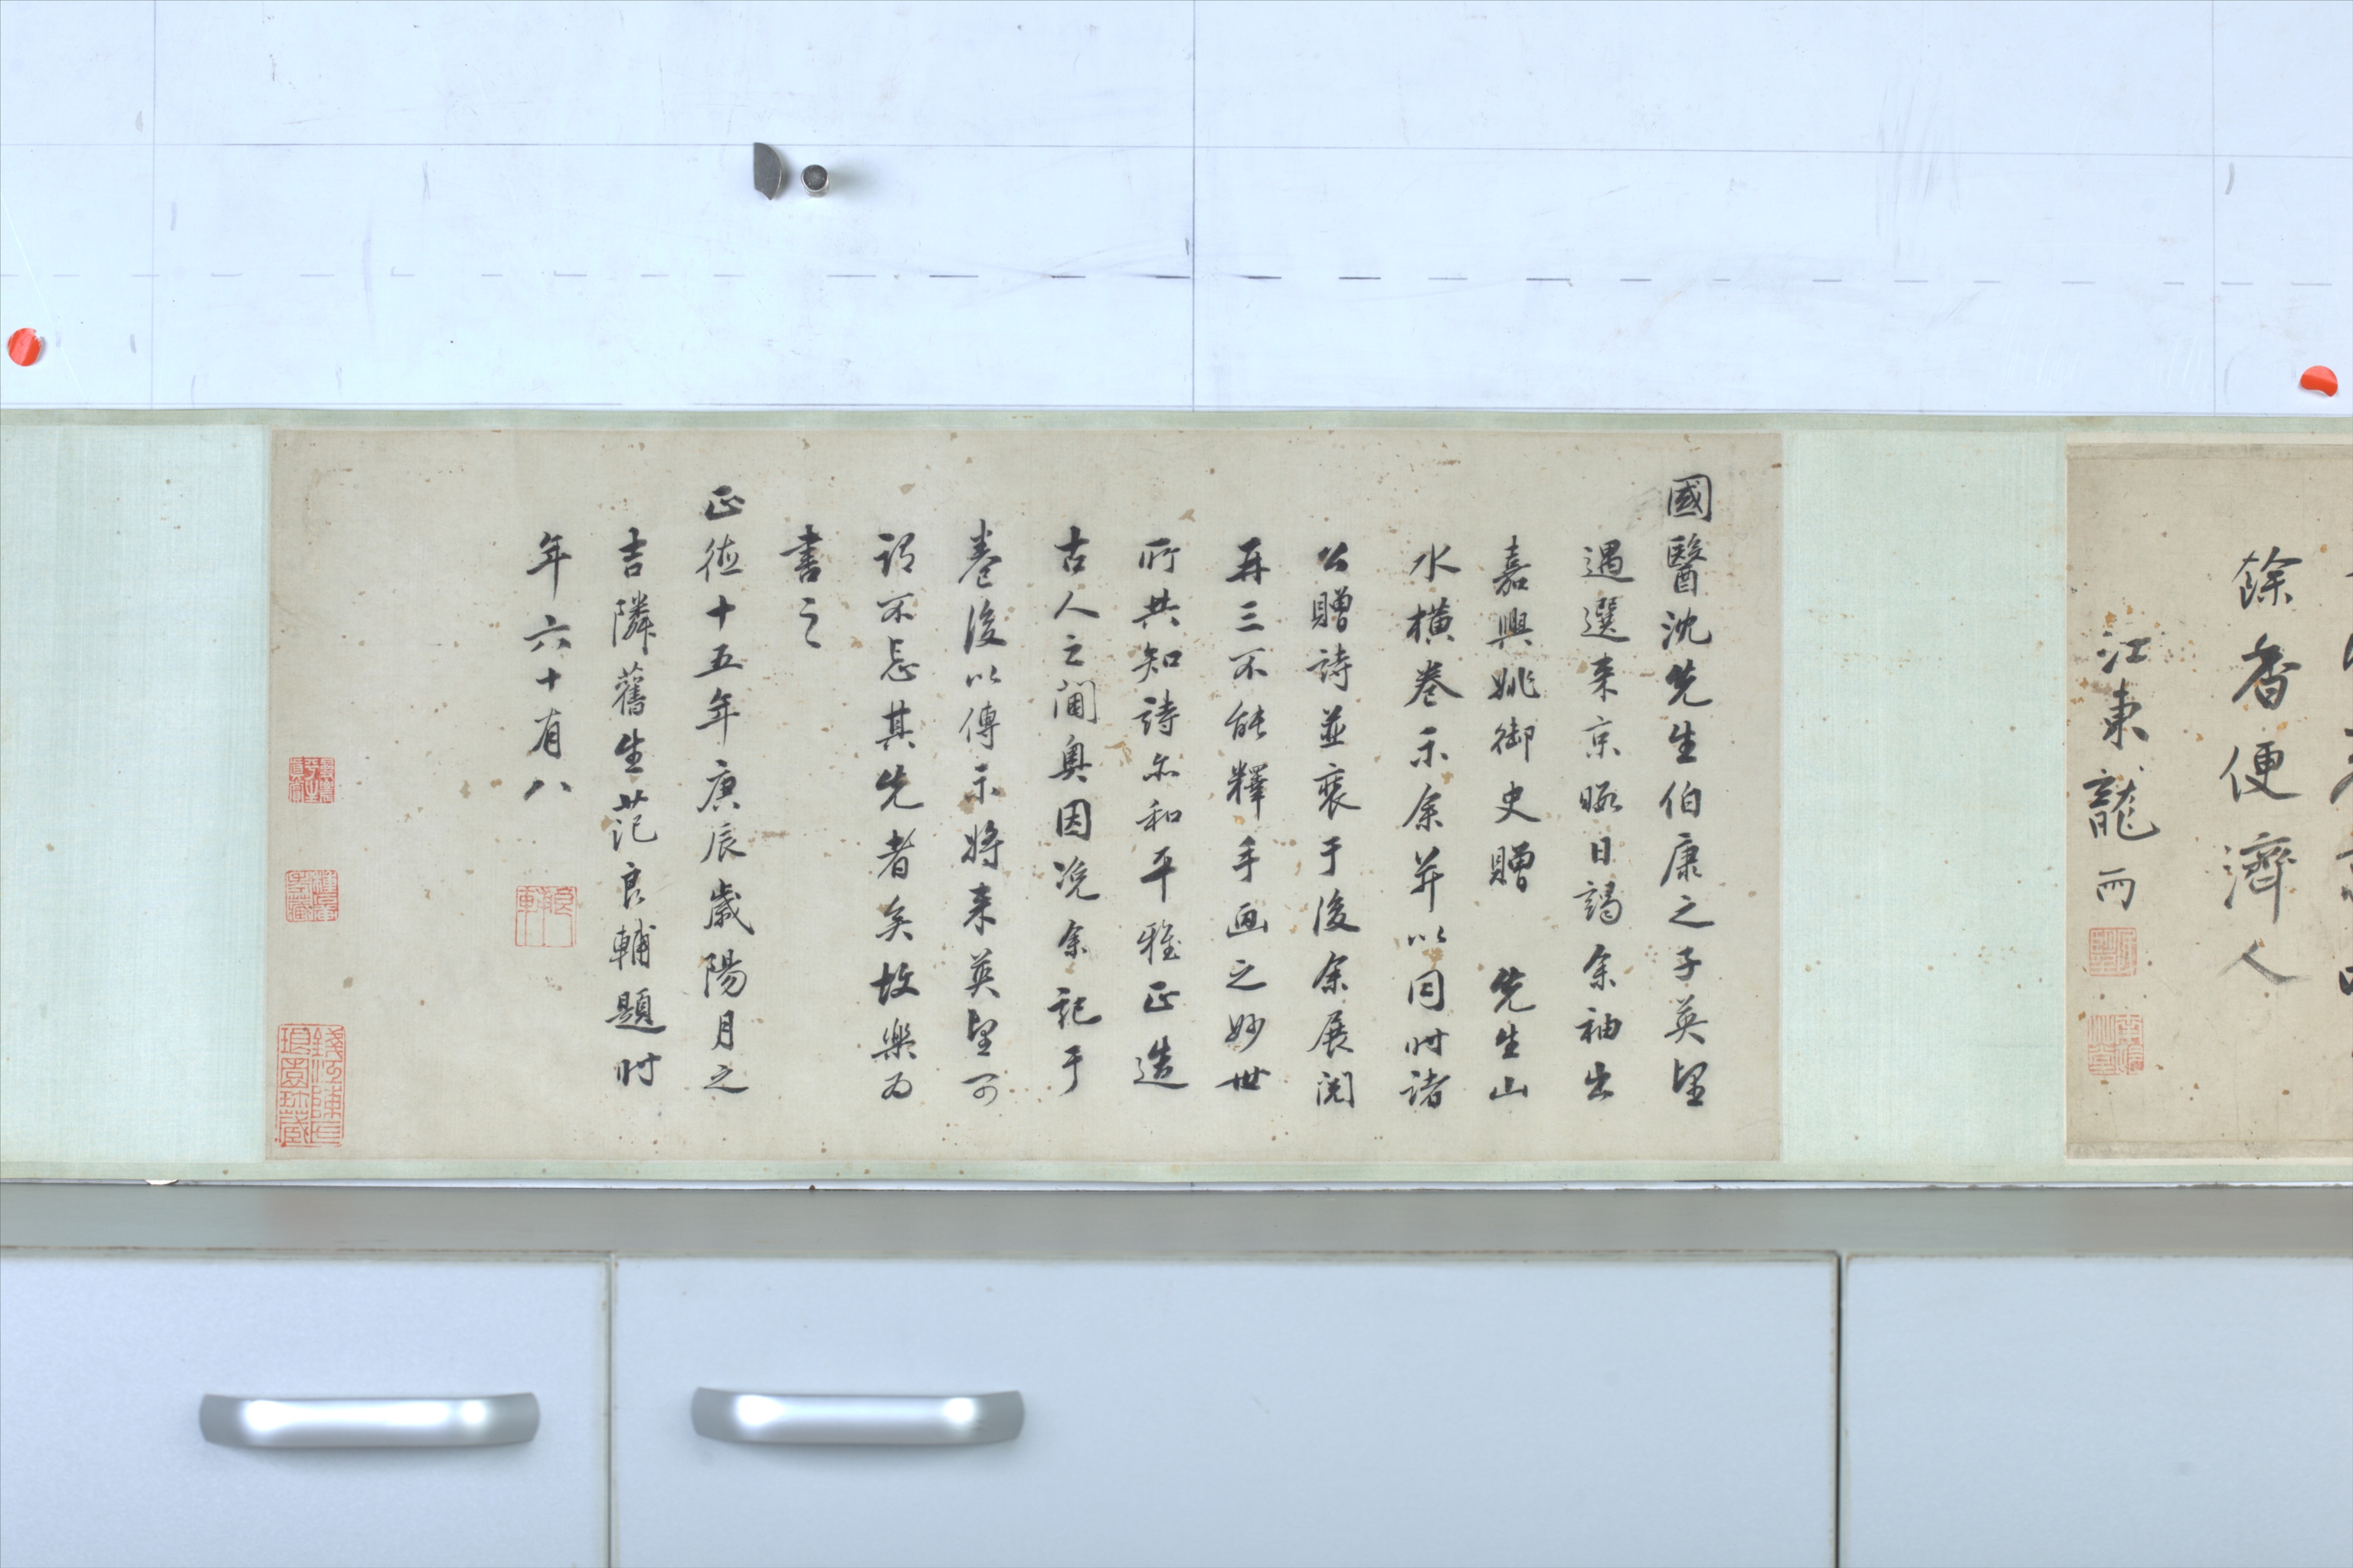 餘香便濟人
江東龍雨
國醫沈先生伯康之子英望
遇選来京暇日謁余袖出
嘉興姚御史贈 先生山
水横卷示余并以同時諸
公贈詩並裒于後余展閱
再三不能釋手画之妙世
所共知詩亦和平雅正造
古人之閫奥因浼余記于
卷後以傳示將来英望可
謂不忘其先者矣故樂為
書之
正徳十五年庚辰歳陽月之
吉隣舊生范良輔題時
年六十有八